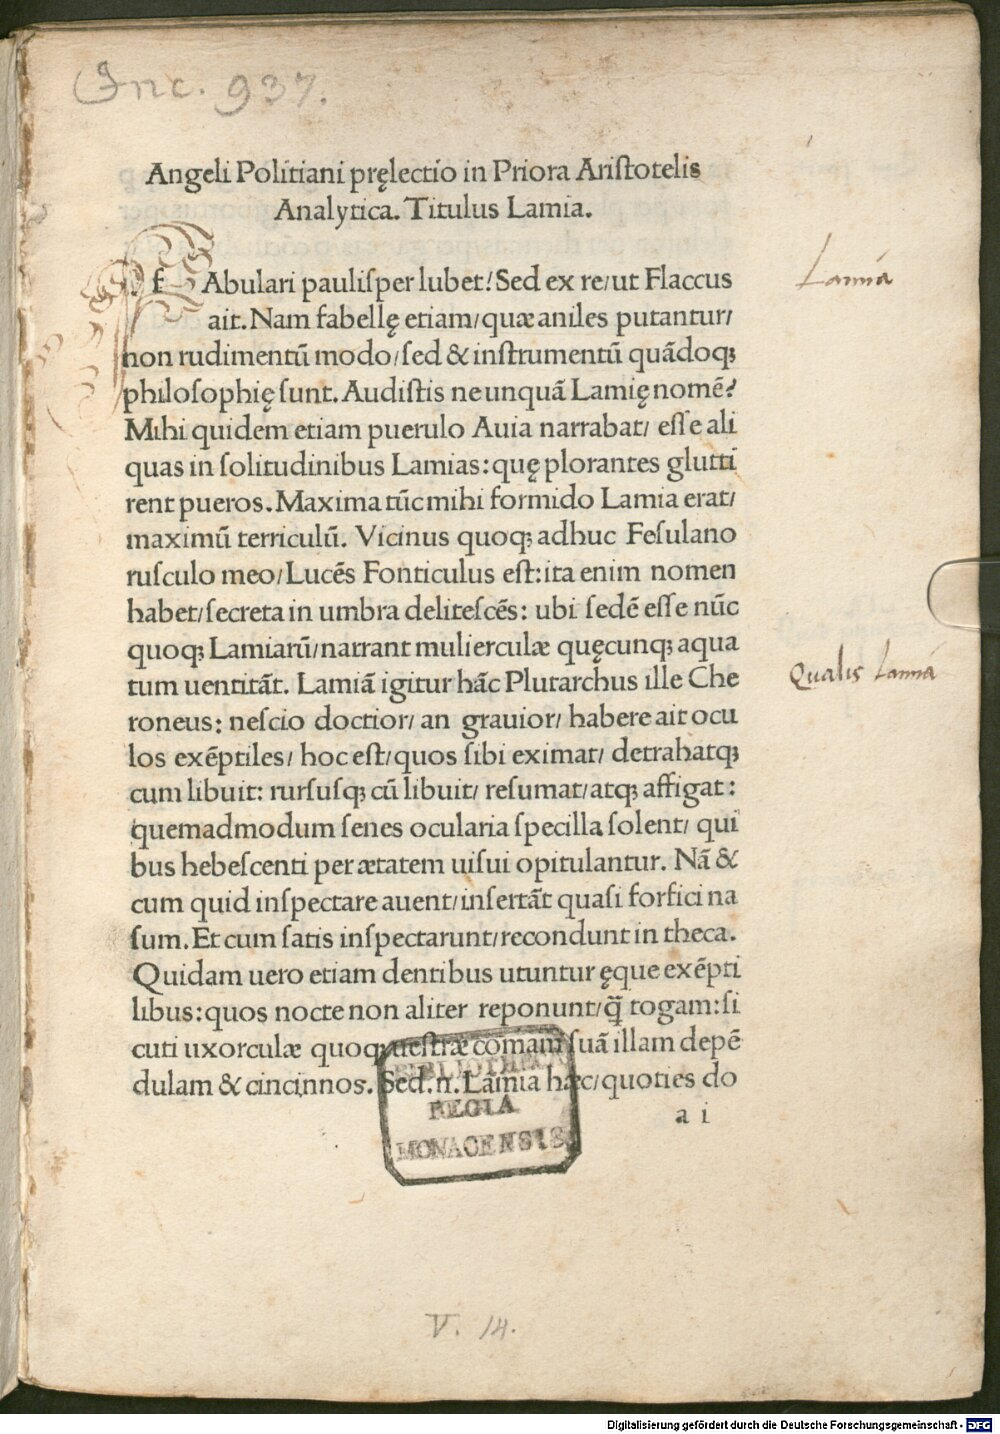 Inc. 937.
Angeli Politiani pręlectio in Priora Aristotelis
Analytica. Titulus Lamia.
Lamia
f Abulari pauliſper lubet/ Sed ex re/ut Flaccus
ait. Nam fabellę etiam/quæ aniles putantur/
non rudimentū modo/ſed & inſtrumentū quādoq;
philoſophię ſunt. Audiſtis ne unquā Lamię nomē?
Mihi quidem etiam puerulo Auia narrabat/ eſſe ali
quas in ſolitudinibus Lamias: quę plorantes glutti
rent pueros. Maxima tūc mihi formido Lamia erat/
maximū terriculū. Vicinus quoq; adhuc Feſulano
ruſculo meo/Lucēs Fonticulus eſt: ita enim nomen
habet/ſecreta in umbra deliteſcēs: ubi ſedē eſſe nūc
quoq; Lamiarū/narrant mulierculæ quęcunq; aqua
tum uentitāt. Lamiā igitur hāc Plutarchus ille Che
Qualis Lamia
roneus: neſcio doctior/ an grauior/ habere ait ocu
los exēptiles/ hoc eſt/quos ſibi eximat/ detrahatq;
cum libuit: rurſuſq; cū libuit/ reſumat/atq; affigat:
quemadmodum ſenes ocularia ſpecilla ſolent/ qui
bus hebeſcenti per ætatem uiſui opitulantur. Nā &
cum quid inſpectare auent/inſertāt quaſi forfici na
ſum. Et cum ſatis inſpectarunt/recondunt in theca.
Quidam uero etiam dentibus utuntur ęque exēpti
libus: quos nocte non aliter reponunt/q̄ togam: ſi
cuti uxorculæ quoq; ueſtræ comam ſuā illam depē
dulam & cincinnos. Sed .n. Lamia hæc/quoties do
a i
BIBLIOTHECA
REGIA
MONACENSIS
V. 14.
Digitalisierung gefördert durch die Deutsche Forschungsgemeinschaft - DFG